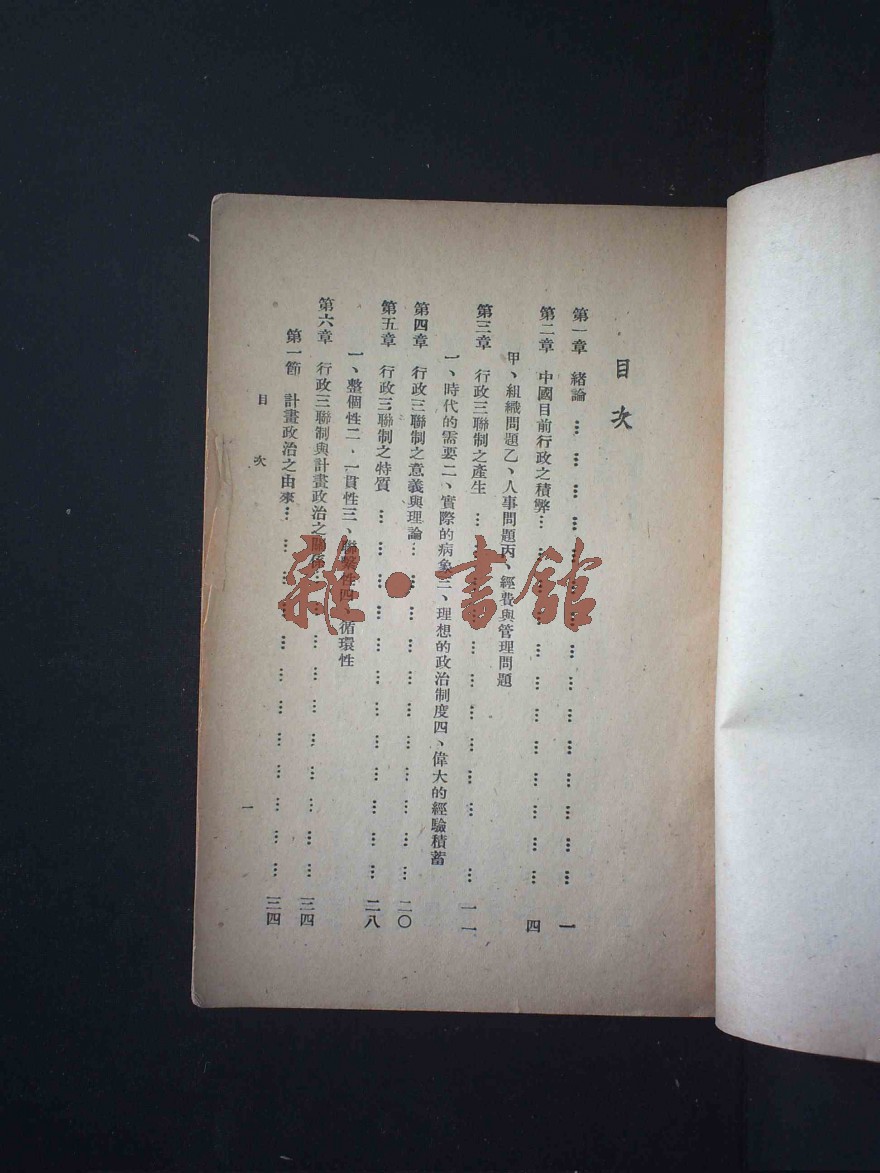 目次
第一章 緒論 … … … … … … … … … … … … … … … 一
第二章 中國目前行政之積弊… … … … … … … … … … … … 四
甲、組織問題乙、人事問題丙、經費與管理問題
第三章 行政三聯制之產生 … … … … … … … … … … … 一一
一、時代的需要二、實際的病象三、理想的政治制度四、偉大的經驗積蓄
第四章 行政三聯制之意義與理論… … … … … … … … … … … 二〇
第五章 行政三聯制之特質 … … … … … … … … … … … … 二八
一、整個性二、一貫性三、聯繫性四、循環性
第六章 行政三聯制與計畫政治之關係… … … … … … … … … … 三四
第一節 計畫政治之由來… … … … … … … … … … … … 三四
目次
一
雜·書館